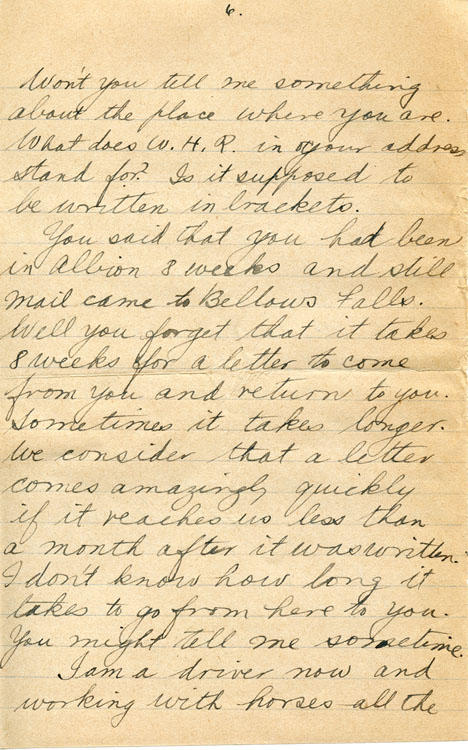 6.
Won't you tell me something
about the place where you are.
What does W. H. R. in your address
stand for? Is it supposed to
be written in brackets.
You said that you had been
in Albion 8 weeks and still
mail came to Bellows Falls.
Well you forget that it takes
8 weeks for a letter to come
from you and return to you.
Sometimes it takes longer.
We consider that a letter
comes amazingly quickly
if it reaches us less than
a month after it was written.
I don't know how long it
takes to go from here to you.
You might tell me sometime.
I am a driver now and
working with horses all the